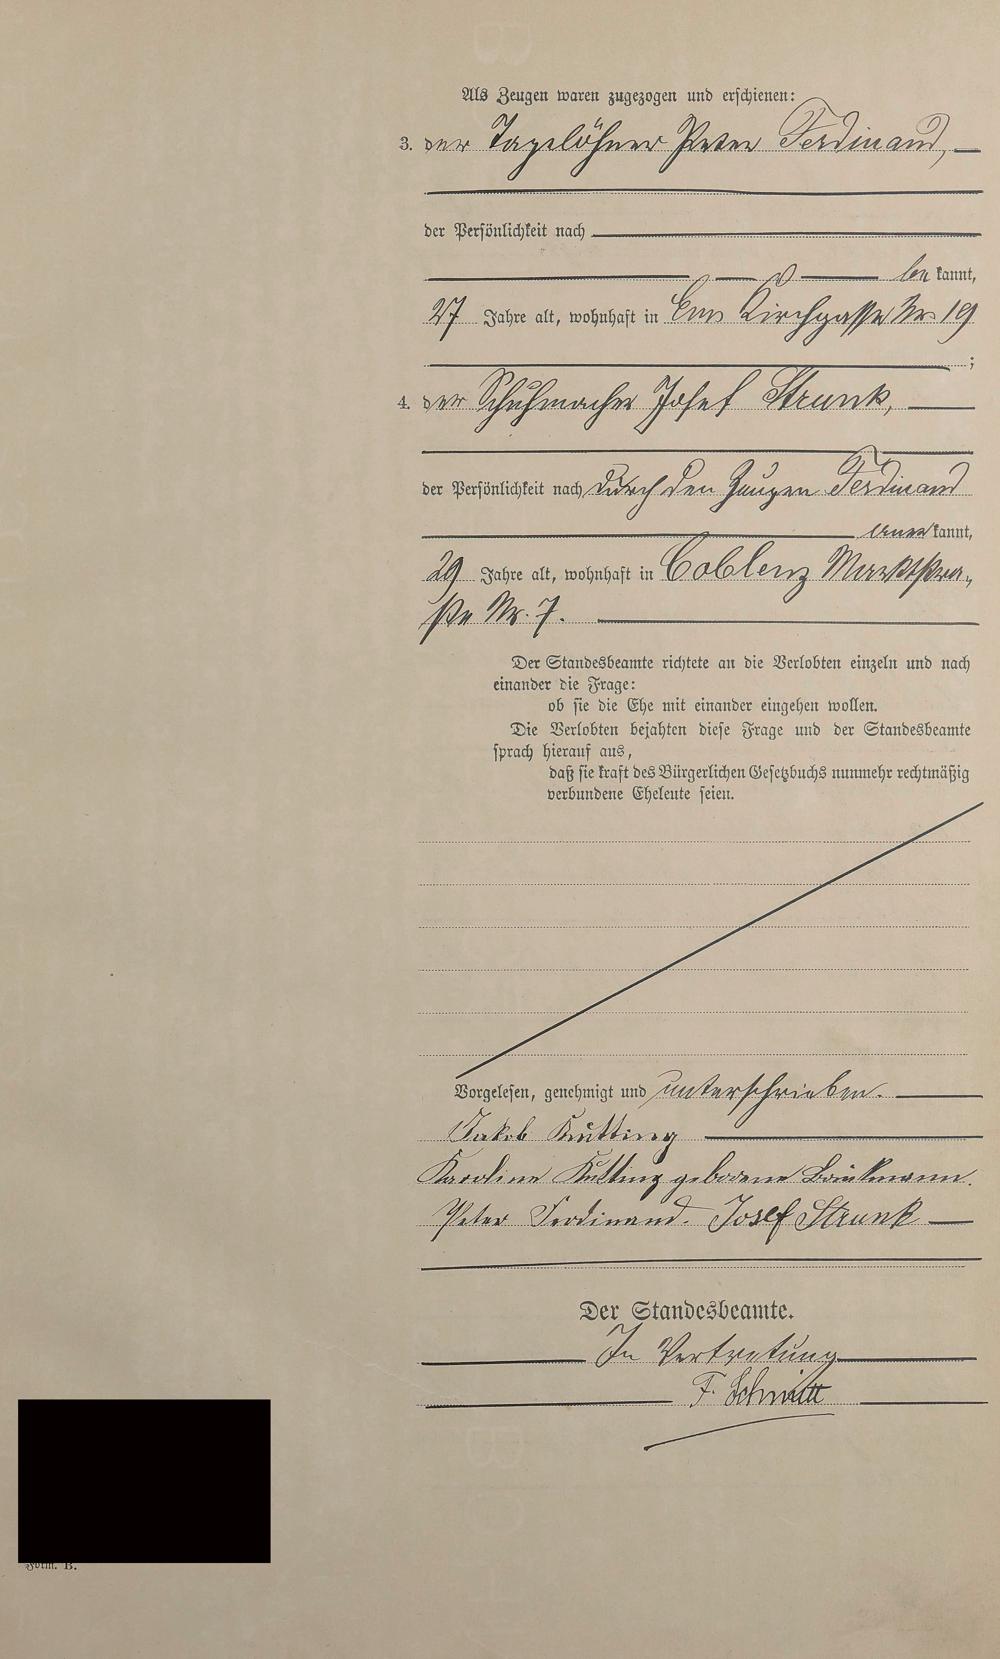 Als Zeugen waren zugezogen und erschienen:
3. der Tagelöhner Peter Ferdinand,
der Persönlichkeit nach
be kannt,
27 Jahre alt, wohnhaft in Ems Kirchgasse Nr. 19
;
4. der Schuhmacher Josef Strunk,
der Persönlichkeit nach durch den Zeugen Ferdinand
aner kannt,
29 Jahre alt, wohnhaft in Coblenz Marktstra-
ße Nr. 7.
Der Standesbeamte richtete an die Verlobten einzeln und nach
einander die Frage:
ob sie die Ehe mit einander eingehen wollen.
Die Verlobten bejahten diese Frage und der Standesbeamte
sprach hierauf aus,
daß sie kraft des Bürgerlichen Gesetzbuchs nunmehr rechtmäßig
verbundene Eheleute seien.
Vorgelesen, genehmigt und unterschrieben.
Jakob Kutting
Karoline Kutting geborene Brinkmann.
Peter Ferdinand. Josef Strunk
Der Standesbeamte.
In Vertretung
F. Schmitt
Form. B.